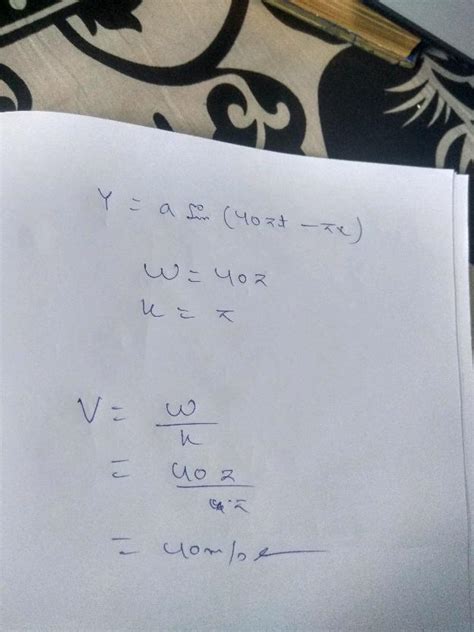 Y = a sin (40πt - πx)
ω = 40π
k = π
V = ω
k
= 40π
π
= 40 m/s